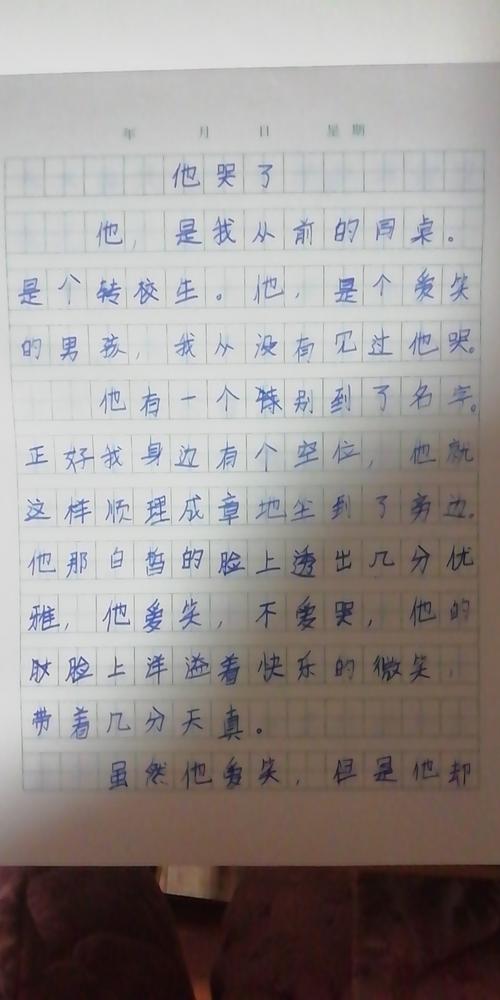 年 月 日 星期
他哭了
他，是我从前的同桌。
是个转校生。他，是个爱笑
的男孩，我从没有见过他哭。
他有一个特别到了名字。
正好我身边有个空位，他就
这样顺理成章地坐到了旁边。
他那白皙的脸上透出几分优
雅，他爱笑，不爱哭，他的
脸上洋溢着快乐的微笑，
带着几分天真。
虽然他爱笑，但是他却